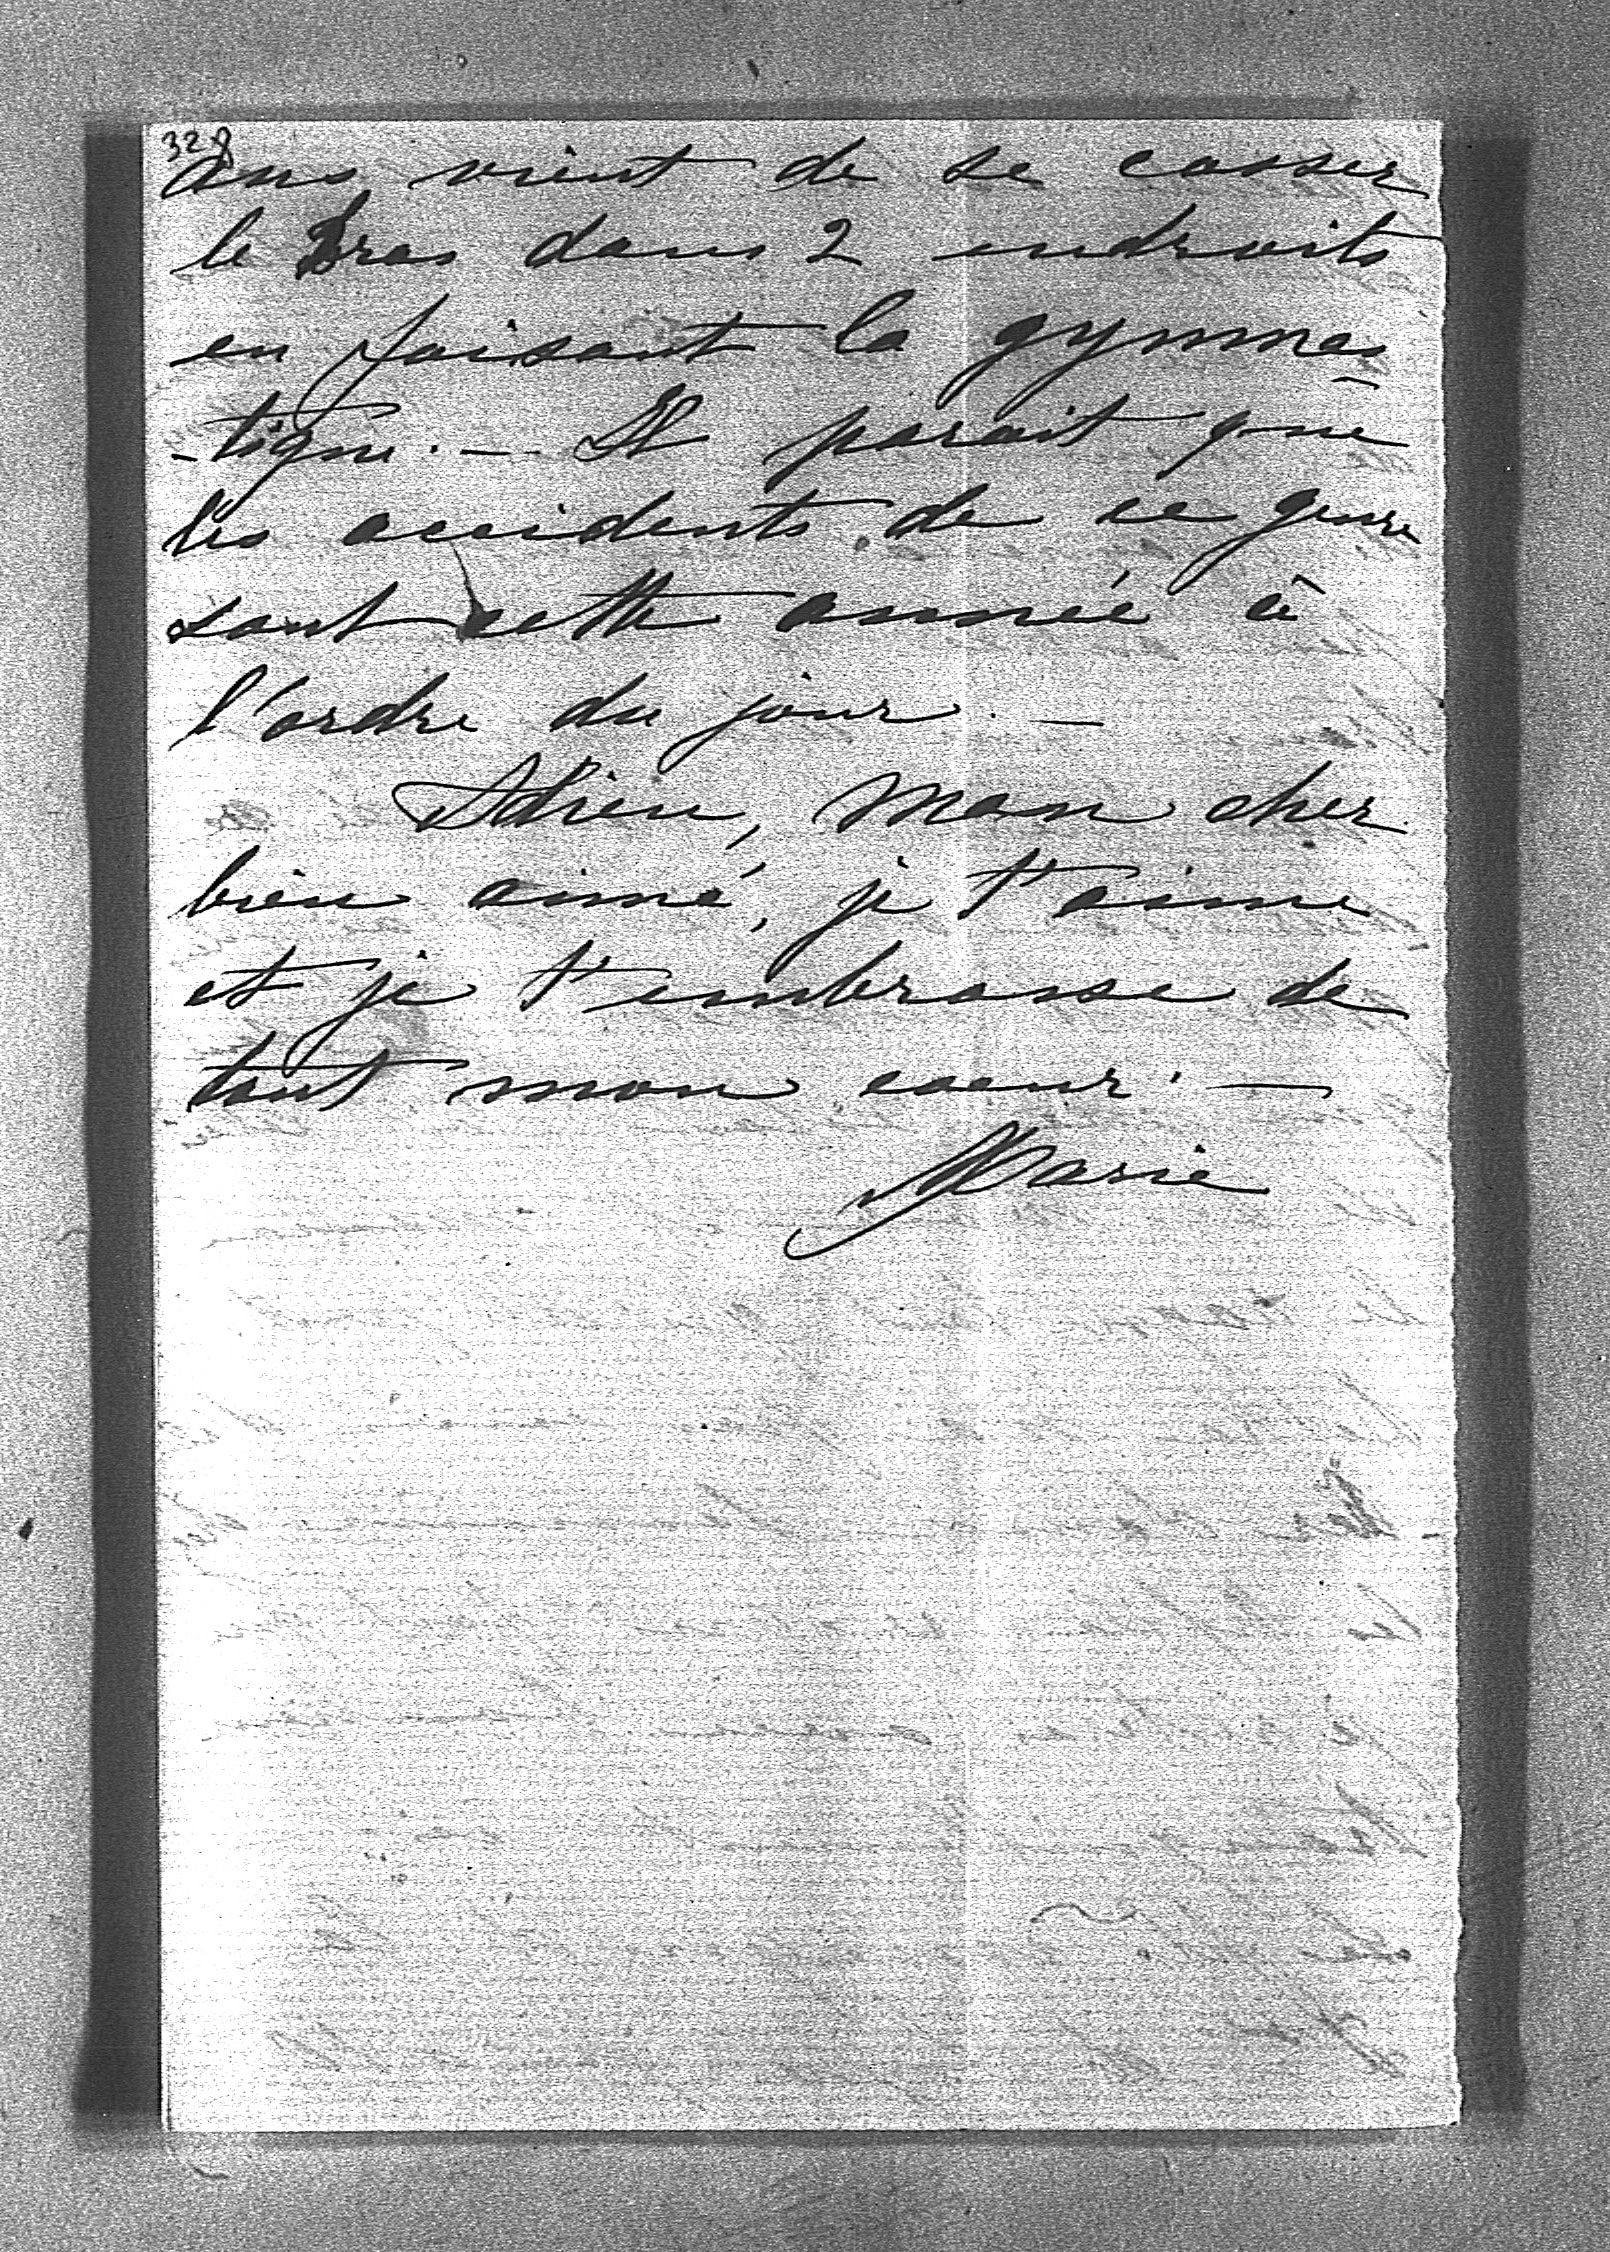 328
ans vient de se casser
le Bras dans 2 endroits
en faisant la gymnas
-tique. — Il parait que
les accidents de ce genre
sont cette année à
l'ordre du jour. —
Adieu, mon cher
bien aimé, je t'aime
et je t'embrasse de
tout mon coeur. —
Marie